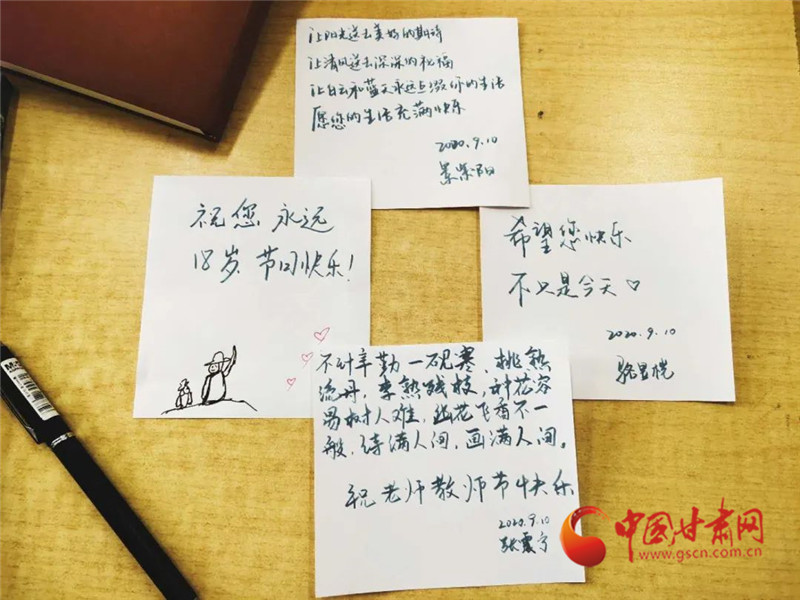 让阳光送去美好的期待
让清风送去深深的祝福
让白云和蓝天永远点缀你的生活
愿您的生活充满快乐
2020.9.10
祝您永远
18岁 节日快乐!
希望您快乐
不只是今天♡
2020.9.10
不计辛勤一砚寒、桃熟
流丹，李熟残枝，种花容
易树人难，幽花飞香不一
般，诗满人间，画满人间。
祝老师教师节快乐
2020.9.10
张震宁
中国甘肃网
www.gscn.com.cn